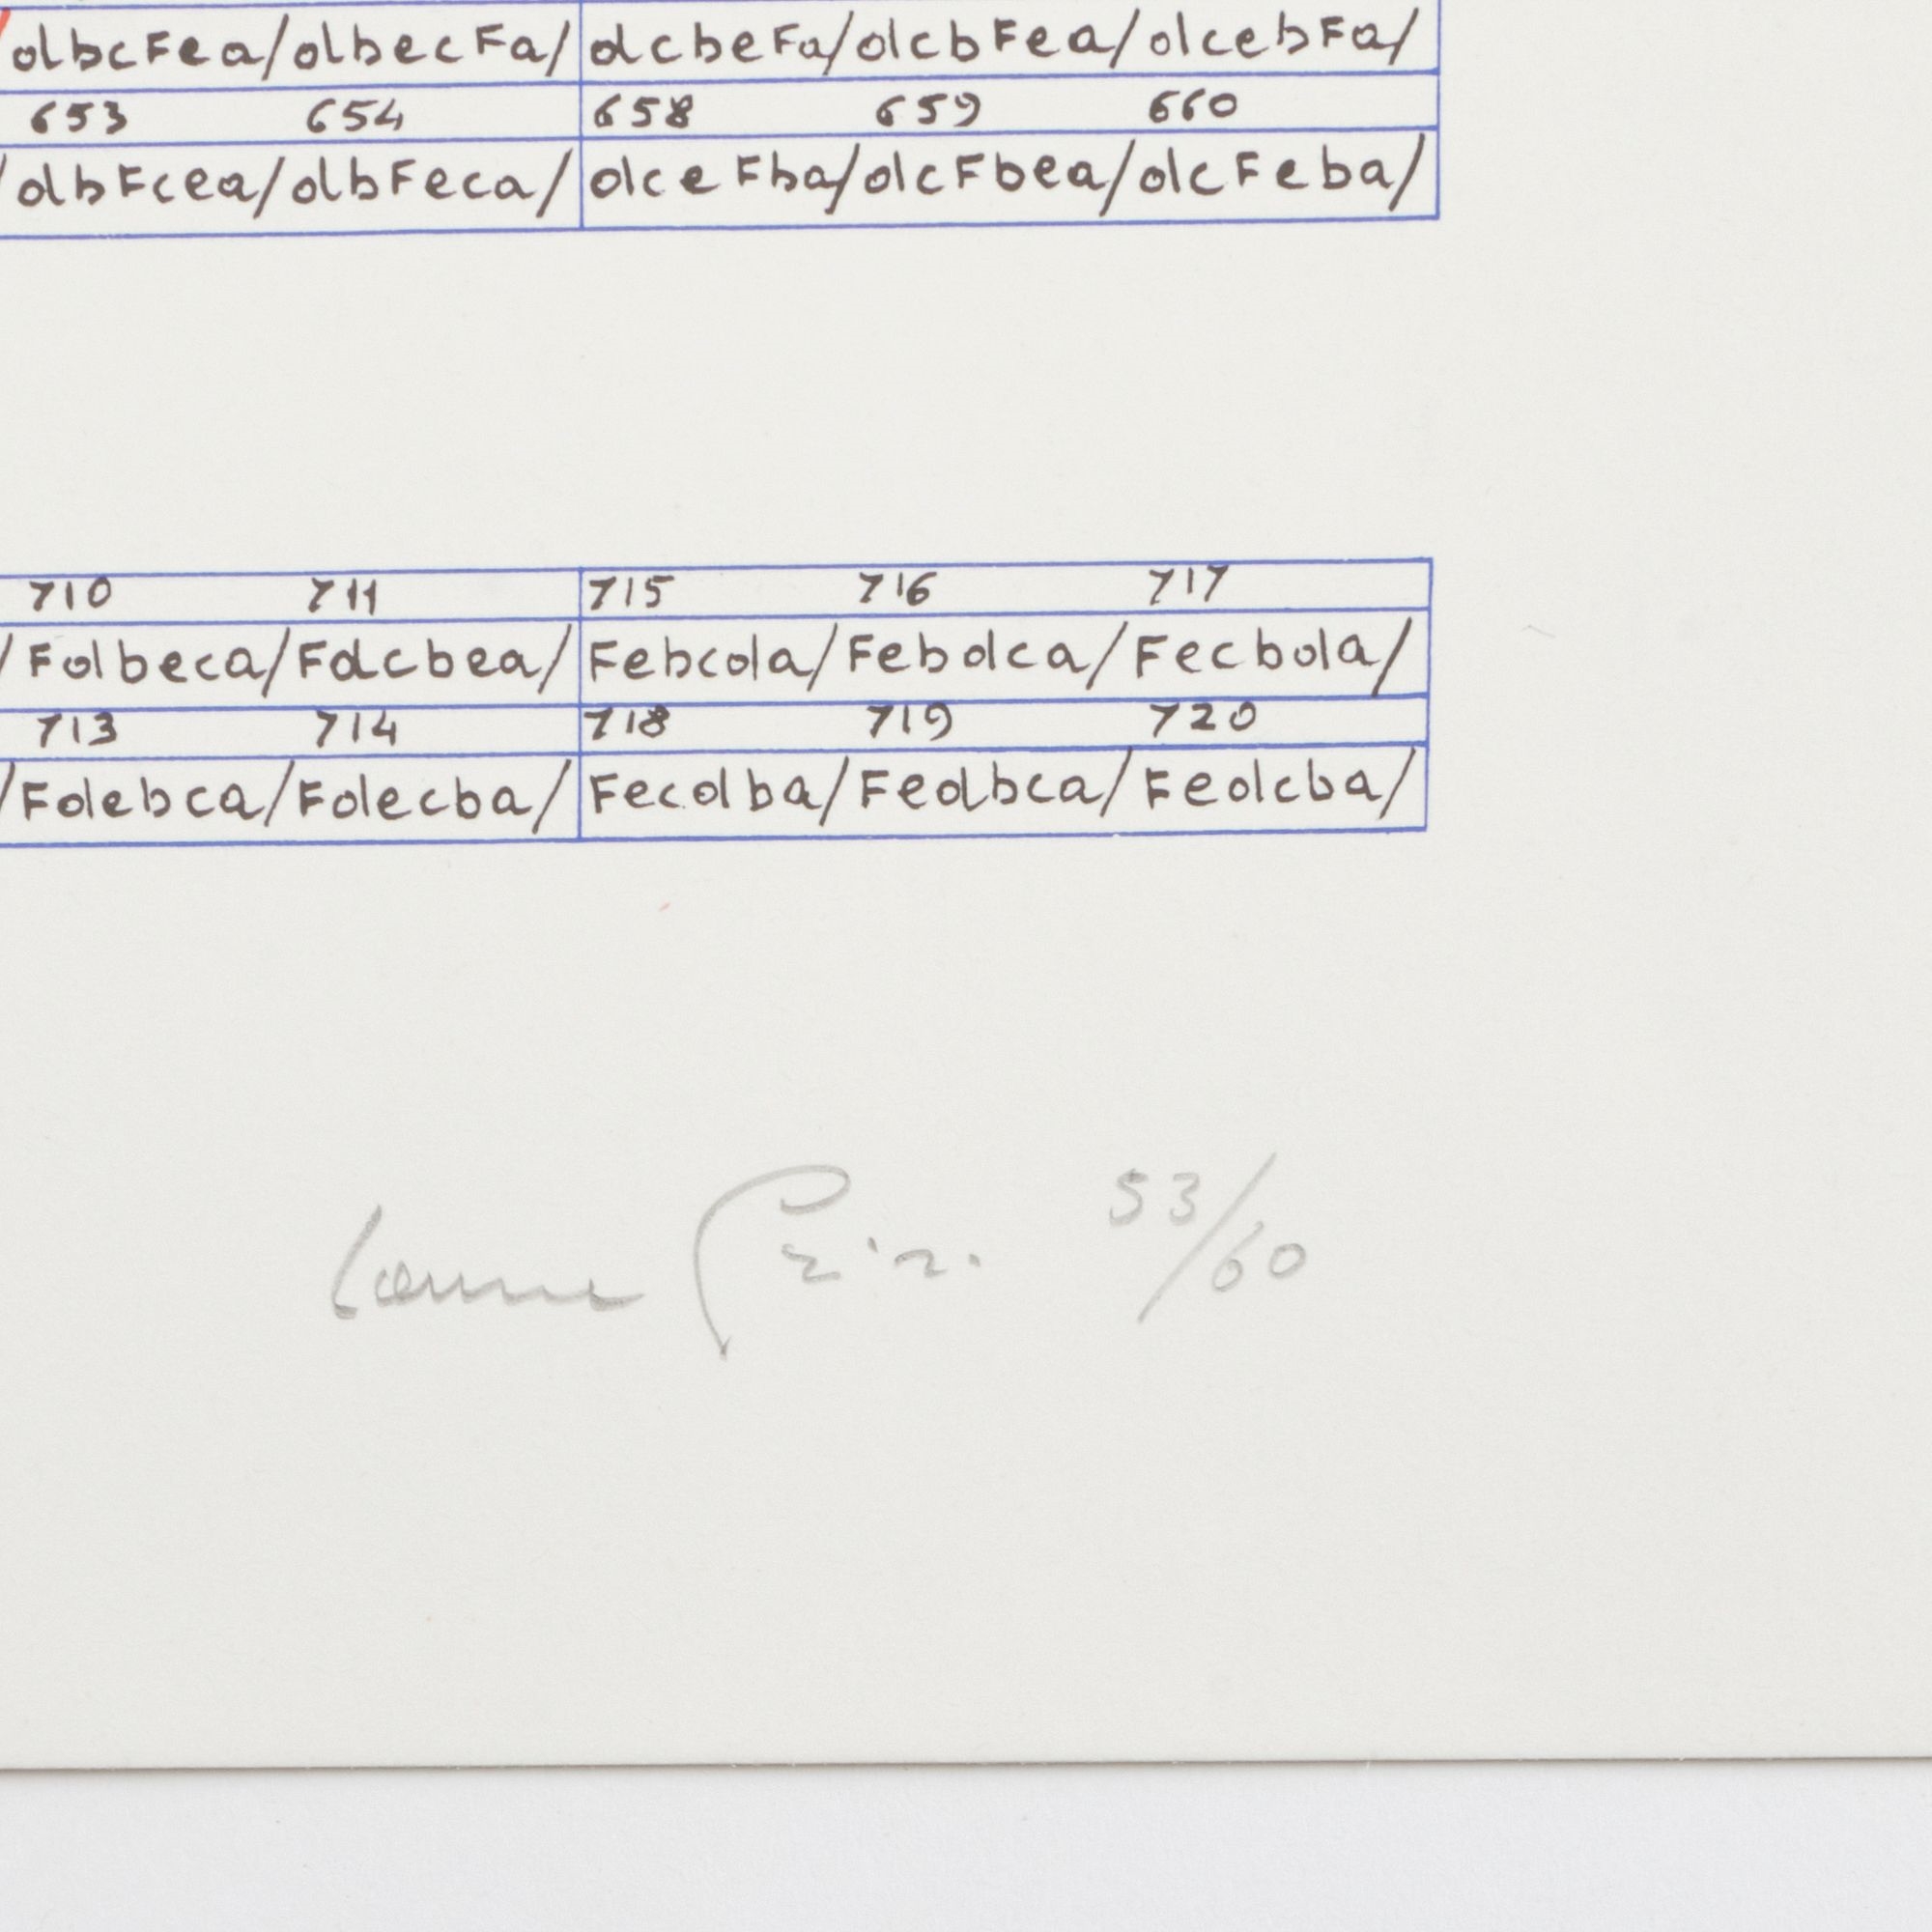 /dbcFea/dbecFa/ dcbeFa/dcbFea/dcebFa/
653 654 658 659 660
/dbFcea/dbFeca/ dceFba/dcFbea/dcFeba/
710 711 715 716 717
/Fdbeca/Fdcbea/ Febcda/Febdca/Fecbda/
713 714 718 719 720
/Fdebca/Fdecba/ Fecdba/Fedbca/Fedcba/
53/60